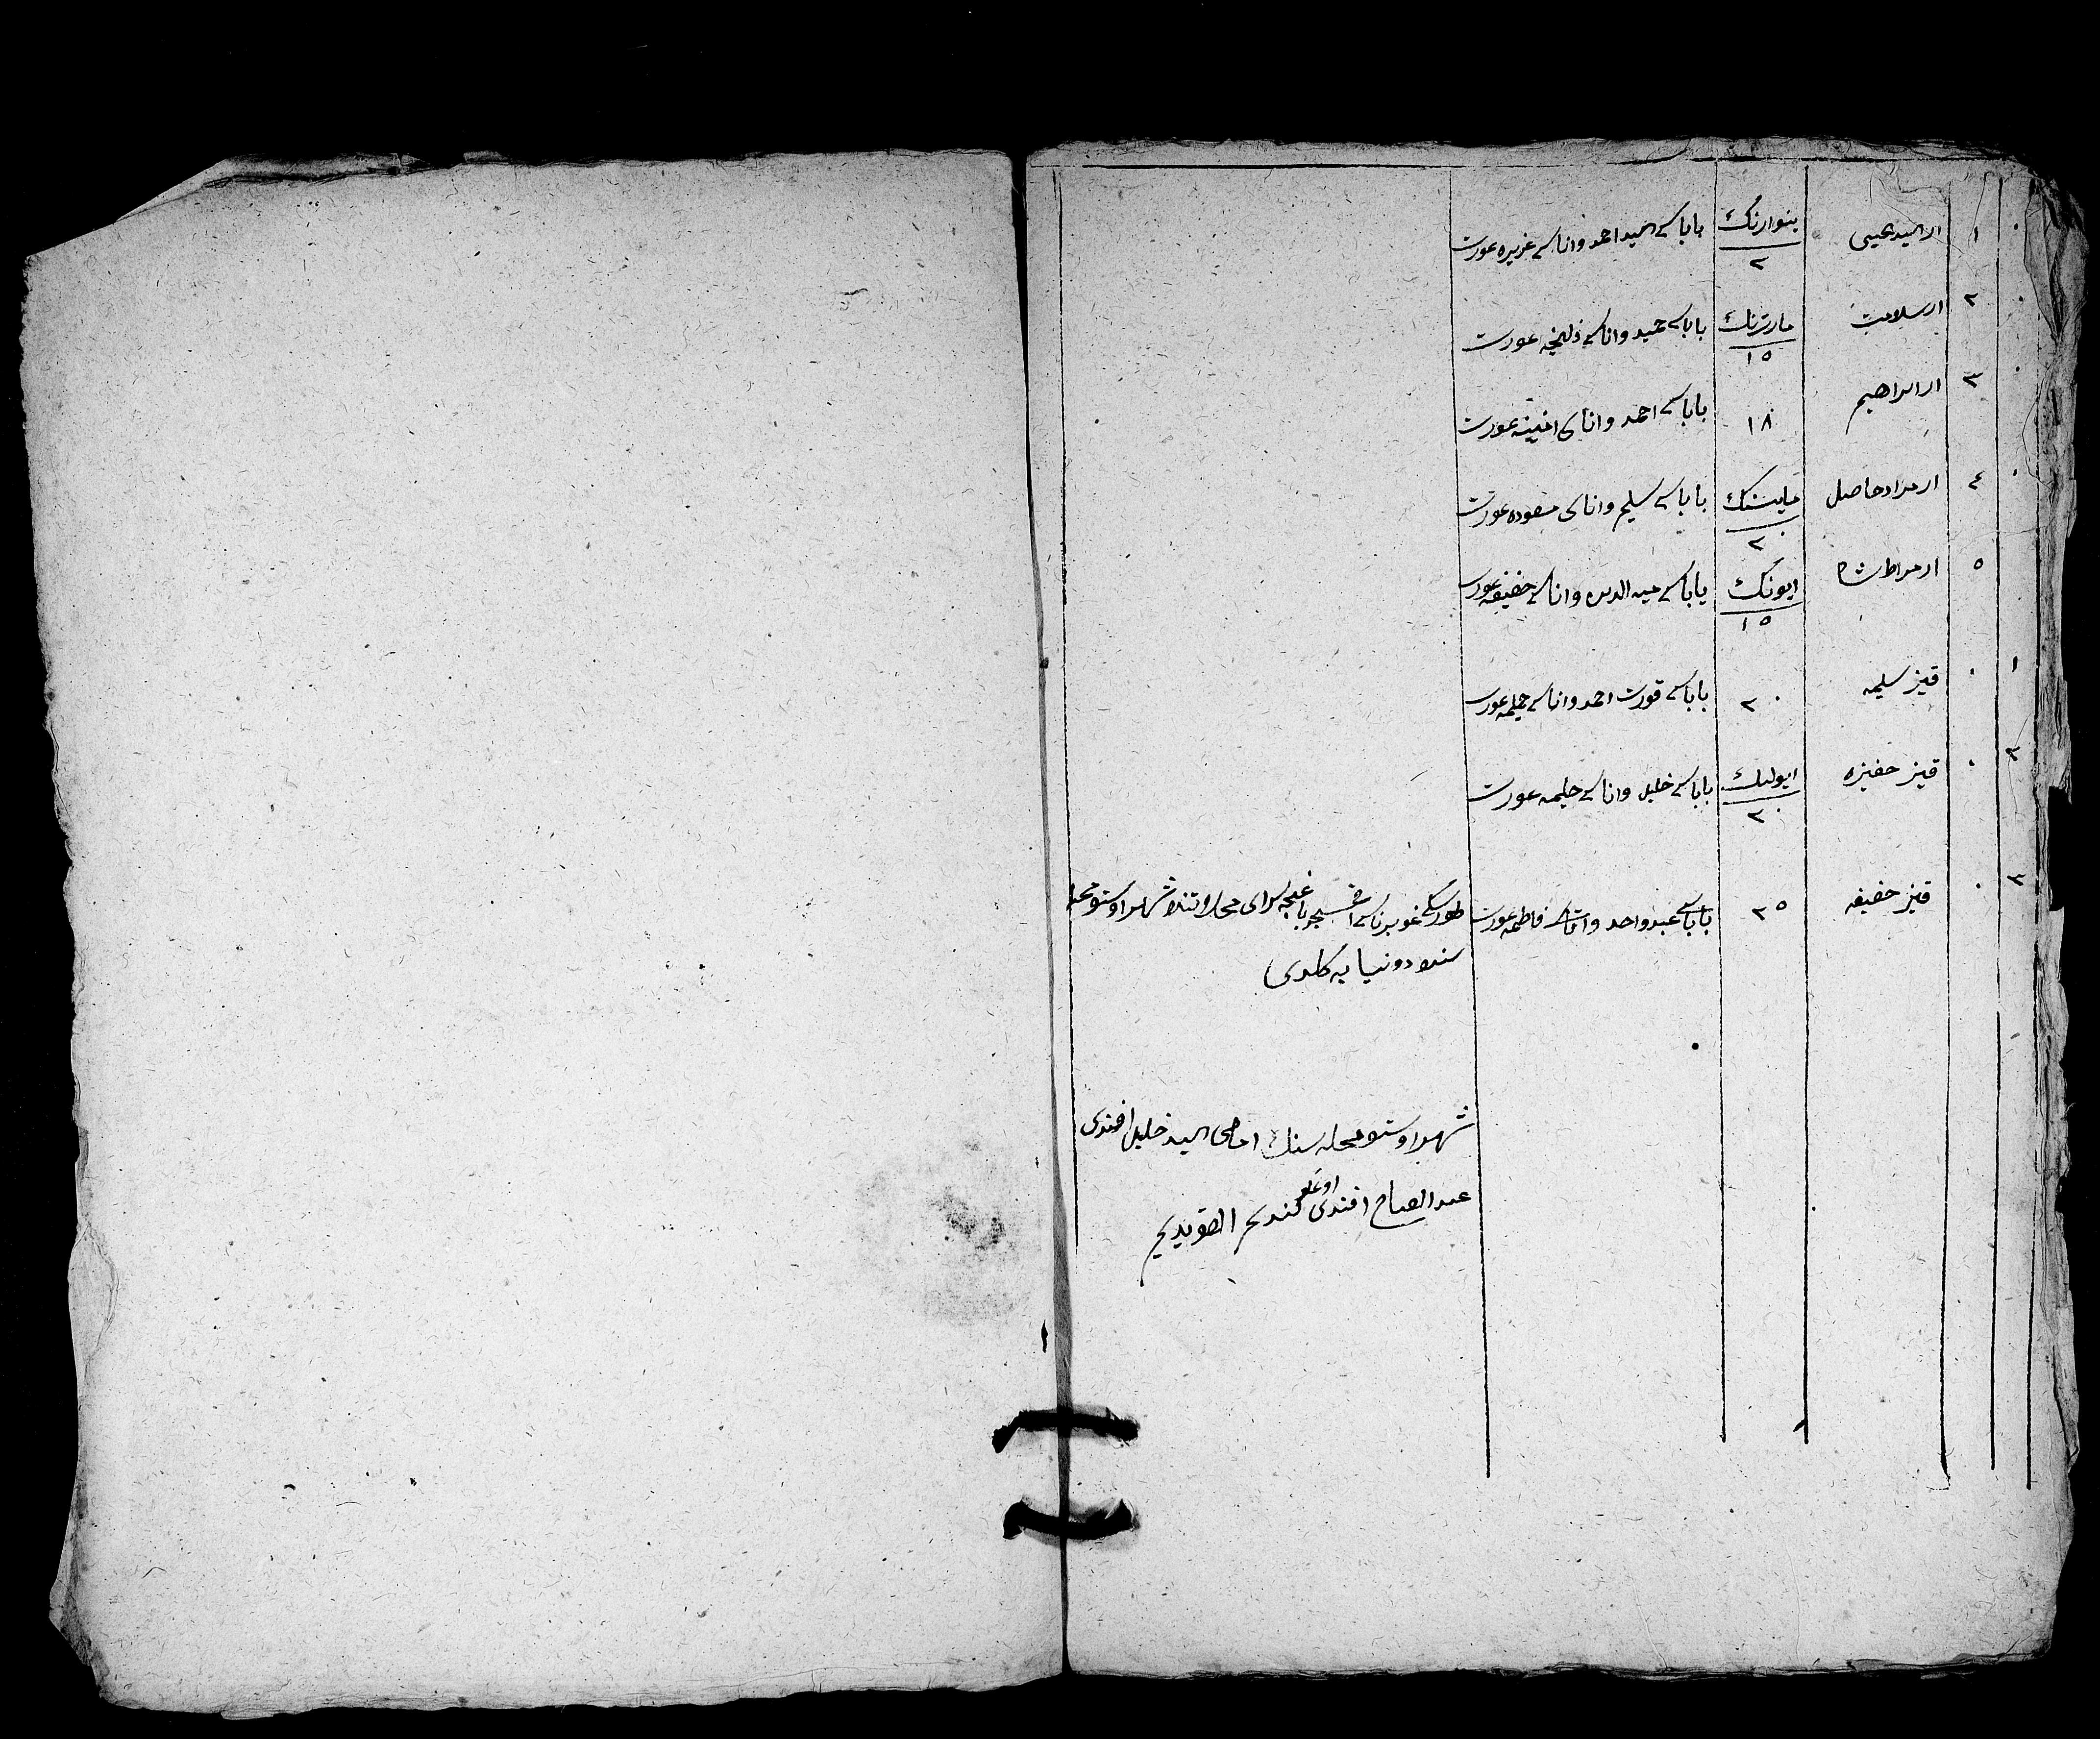 ٠ ١ ار السيد يحيى ينوارنك ٢ باباسى السيد احمد واناسى عزيزه عورت
٠ ٢ ار سلامت مارتنك ١٥ باباسى حميد واناسى ذليخه عورت
٠ ٣ ار ابراهيم ١٨ باباسى احمد واناسى عورت
٠ ٤ ار مراد حاصل مايسنك ٢٠ باباسى سليم واناسى مسعوده عورت
٥ ار مراط شاه ايونك ١٥ باباسى واناسى حفيفه عورت
١ ٠ قيز سليمه ٢٠ باباسى قورت احمد واناسى حليمه عورت
٢ ٠ قيز حفيزه ايولنك ٢٠ باباسى خليل واناسى حليمه عورت
٣ ٠ قيز حفيفه ٢٥ باباسى عبد واحد واناسى فاطمه عورت
باغچه سراى شهر اوستو محله
سنده دونيايه كلدى
شهر اوستو محله سنك امامى السيد خليل افندى
افندى اوغلو كنديم القويديم